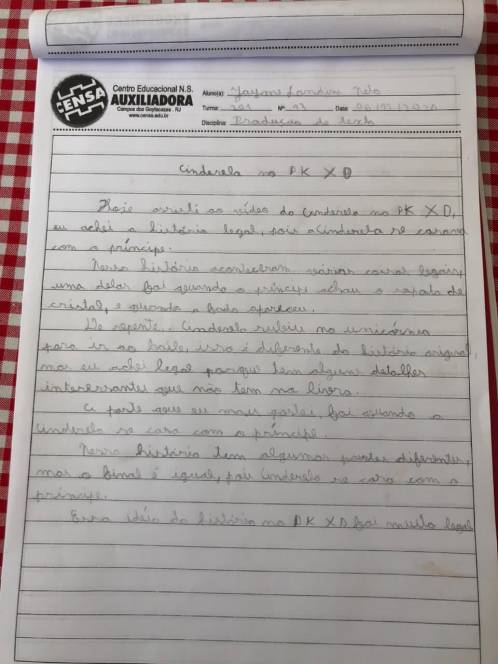 CENSA
Centro Educacional N.S.
AUXILIADORA
Campos dos Goytacazes . RJ
www.censa.edu.br
Aluno(a): Jayme Landim Neto
Turma: 201 Nº 23 Data:
Disciplina: Produção de texto
Cinderela no PK XD
Hoje assisti ao vídeo da Cinderela no PK XD,
eu achei a história legal, pois a Cinderela se casava
com o príncipe.
Nessa história aconteceram várias coisas legais,
uma delas foi quando o príncipe achou o sapato de
cristal, e quando a fada apareceu.
De repente a Cinderela subiu no unicórnio
para ir ao baile, isso é diferente da história original,
mas eu achei legal porque tem alguns detalhes
interessantes que não tem no livro.
A parte que eu mais gostei, foi quando a
Cinderela se casa com o príncipe.
Nessa história tem algumas partes diferentes,
mas o final é igual, pois Cinderela se casa com o
príncipe.
Essa idéia da história no PK XD foi muito legal